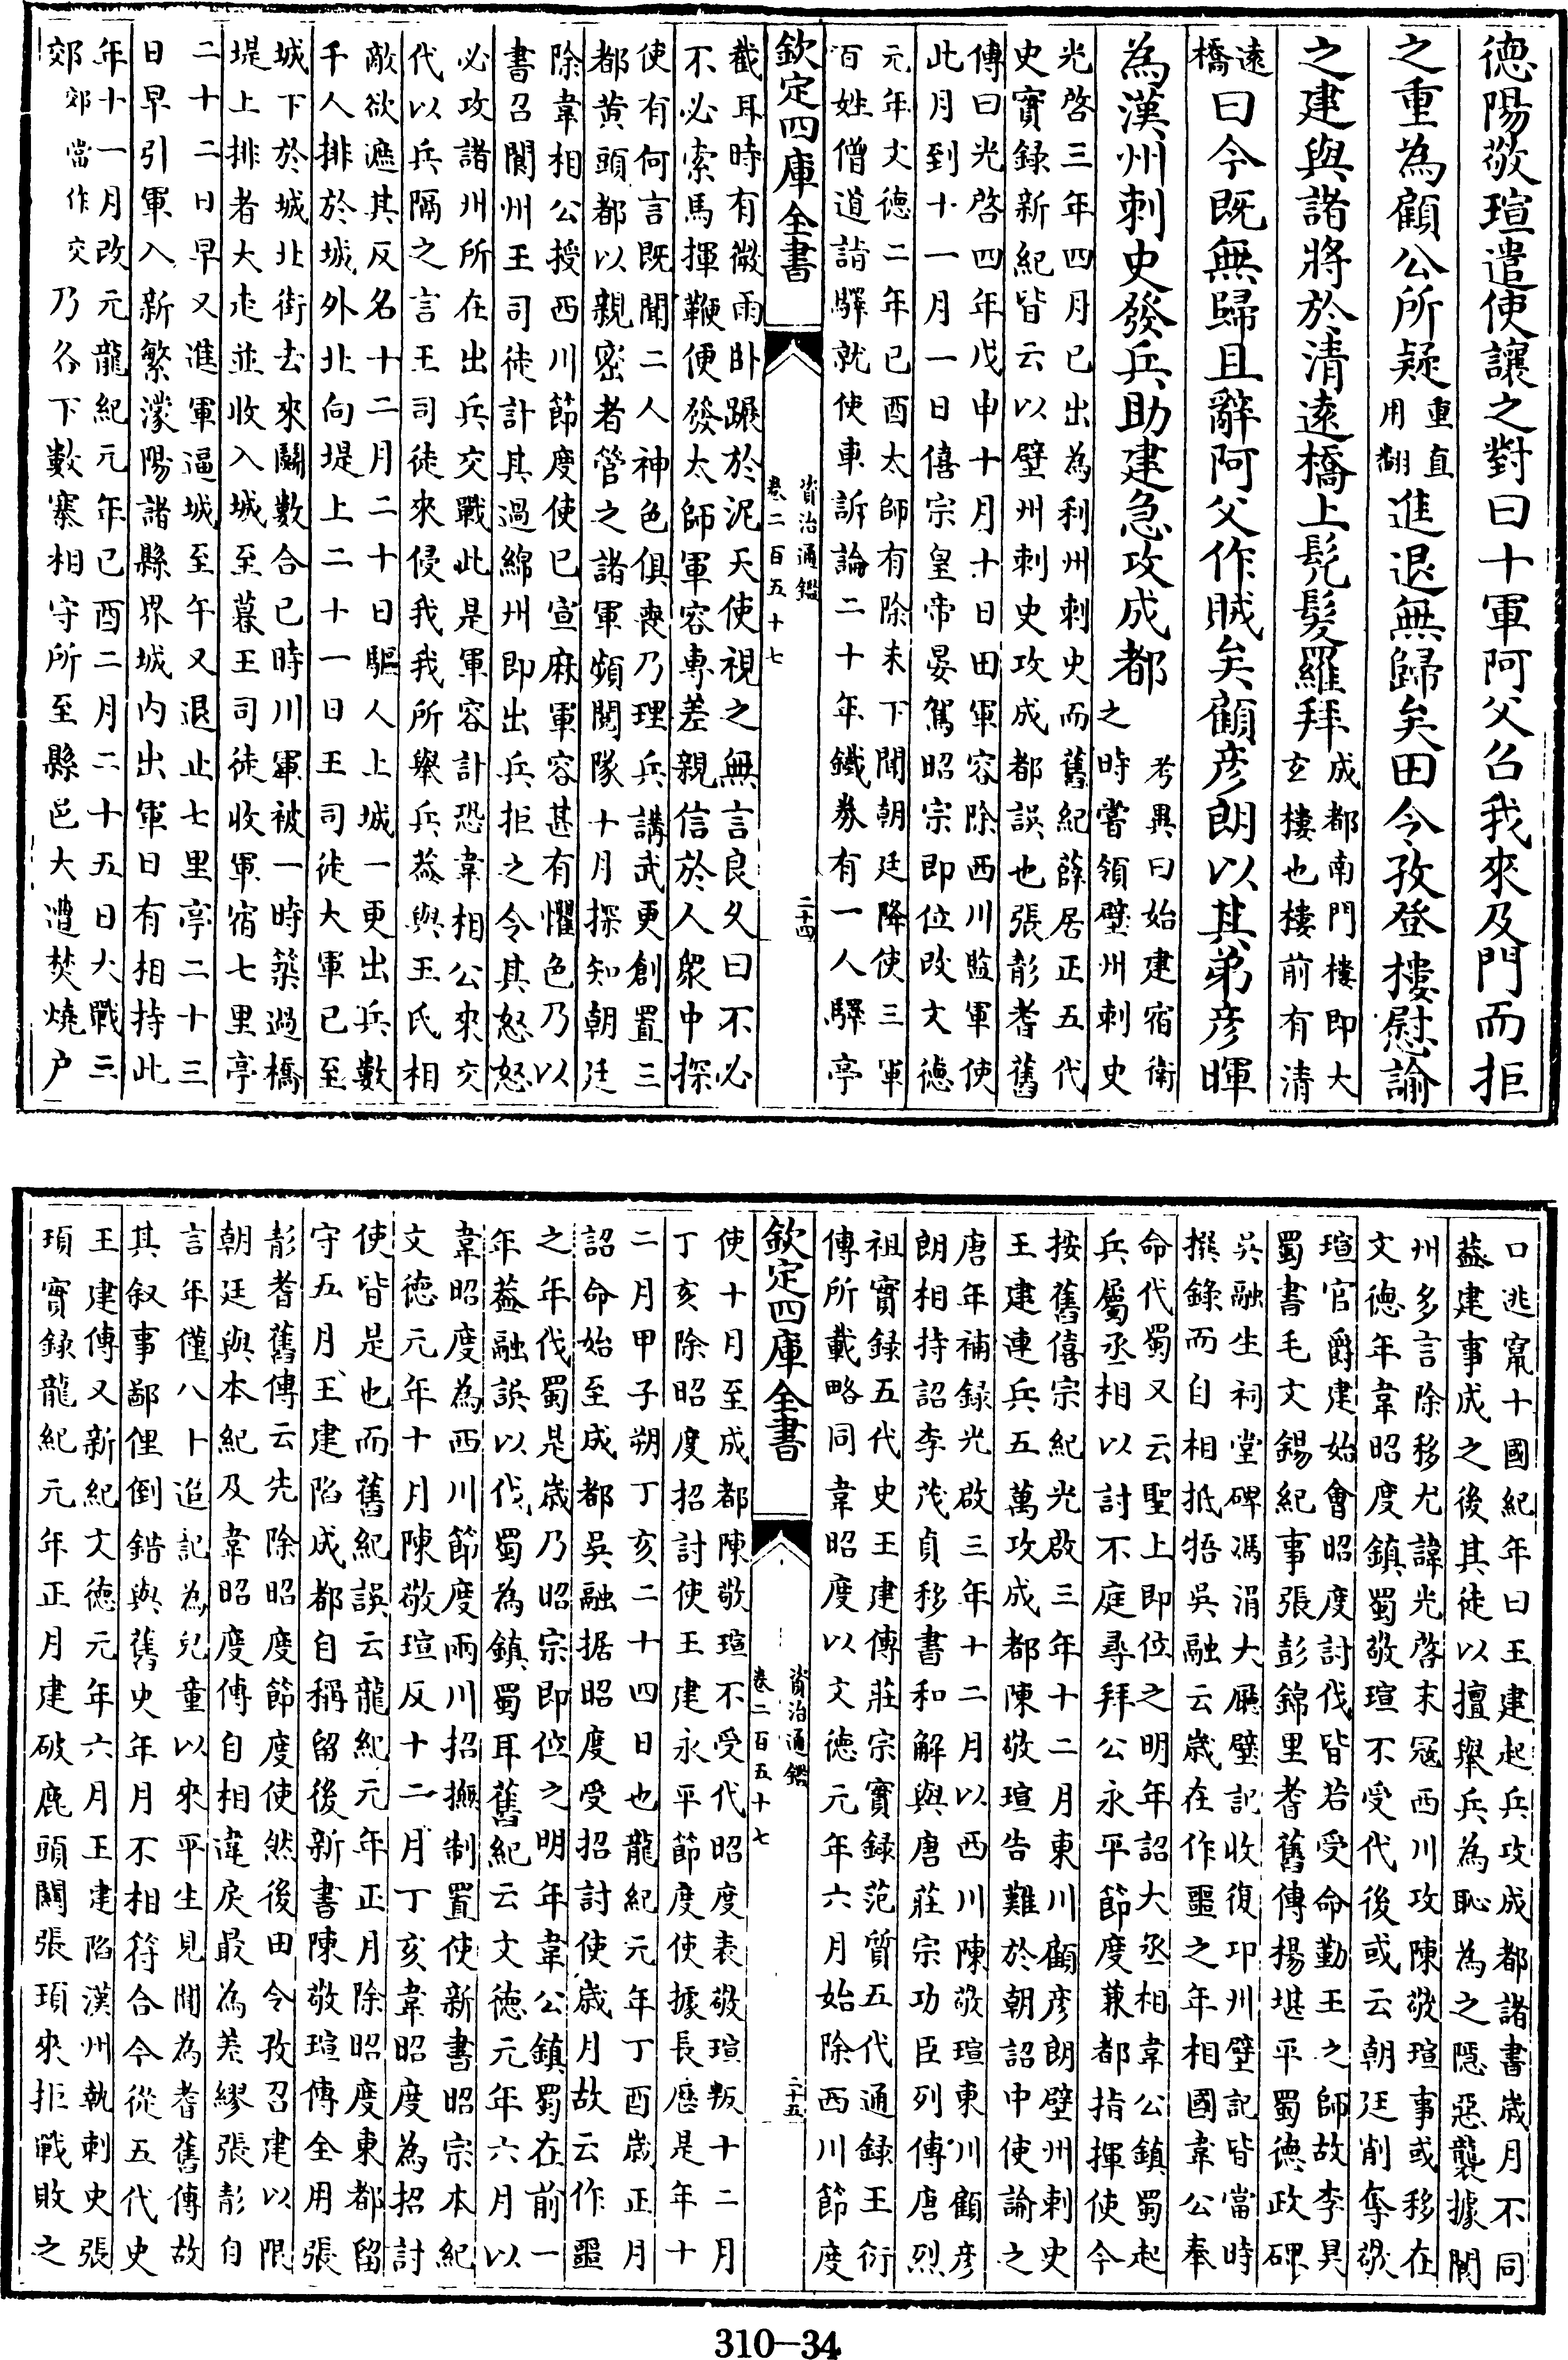 德陽敬瑄遣使讓之對曰十軍阿父召我來及門而拒
之重為顧公所疑重直用翻進退無歸矣田令孜登樓慰諭
之建與諸將於清遠橋上髠髮羅拜成都南門樓即大玄樓也樓前有清
遠橋曰今既無歸且辭阿父作賊矣顧彦朗以其弟彦暉
為漢州刺史發兵助建急攻成都考異曰始建宿衛之時嘗領壁州刺史
光啓三年四月已出為利州刺史而舊紀薛居正五代
史實録新紀皆云以壁州刺史攻成都誤也張彰耆舊
傳曰光啓四年戊申十月十日田軍容除西川監軍使
此月到十一月一日僖宗皇帝晏駕昭宗即位改文德
元年文德二年已酉太師有除未下聞朝廷降使三軍
百姓僧道詣驛就使車訴論二十年鐵券有一人驛亭
欽定四庫全書
資治通鑑
卷二百五十七
二十四
截耳時有微雨卧躧於泥天使視之無言良久曰不必
不必索馬揮鞭便發太師軍容專差親信於人衆中探
使有何言既聞二人神色俱喪乃理兵講武更創置三
都黄頭都以親密者管之諸軍頻閲隊十月探知朝廷
除韋相公授西川節度使已宣麻軍容甚有懼色乃以
書召閬州王司徒計其過綿州即出兵拒之令其怒怒
必攻諸州所在出兵交戰此是軍容計恐韋相公來交
代以兵隔之言王司徒來侵我我所舉兵葢與王氏相
敵欲遮其反名十二月二十日驅人上城一更出兵數
千人排於城外北向堤上二十一日王司徒大軍已至
城下於城北街去來鬭數合已時川軍被一時築過橋
堤上排者大走並收入城至暮王司徒收軍宿七里亭
二十二日早又進軍逼城至午又退止七里亭二十三
日早引軍入新繁濛陽諸縣界城内出軍日有相持此
年十一月改元龍紀元年已酉二月二十五日大戰三
郊郊當作交乃各下數寨相守所至縣邑大遭焚燒户
口逃竄十國紀年曰王建起兵攻成都諸書歲月不同
葢建事成之後其徒以擅舉兵為恥為之隱惡襲據閬
州多言除移尤諱光啓末冦西川攻陳敬瑄事或移在
文德年韋昭度鎮蜀敬瑄不受代後或云朝廷削奪敬
瑄官爵建始會昭度討伐皆若受命勤王之師故李昊
蜀書毛文錫紀事張彭錦里耆舊傳楊堪平蜀德政碑
吳融生祠堂碑馮涓大廳壁記收復卭州壁記皆當時
撰錄而自相抵牾吳融云歲在作噩之年相國韋公奉
命代蜀又云聖上即位之明年詔大丞相韋公鎮蜀起
兵屬丞相以討不庭尋拜公永平節度兼都指揮使今
按舊僖宗紀光啟三年十二月東川顧彦朗壁州刺史
王建連兵五萬攻成都陳敬瑄告難於朝詔中使諭之
唐年補録光啟三年十二月以西川陳敬瑄東川顧彦
朗相持詔李茂貞移書和解與唐莊宗功臣列傳唐烈
祖實録五代史王建傳莊宗實録范質五代通録王衍
傳所載略同韋昭度以文德元年六月始除西川節度
欽定四庫全書
資治通鑑
卷二百五十七
二十五
使十月至成都陳敬瑄不受代昭度表敬瑄叛十二月
丁亥除昭度招討使王建永平節度使據長歷是年十
二月甲子朔丁亥二十四日也龍紀元年丁酉歲正月
詔命始至成都吳融据昭度受招討使歲月故云作噩
之年代蜀是歲乃昭宗即位之明年韋公鎮蜀在前一
年葢融誤以伐蜀為鎮蜀耳舊紀云文德元年六月以
韋昭度為西川節度兩川招撫制置使新書昭宗本紀
文德元年十月陳敬瑄反十二月丁亥韋昭度為招討
使皆是也而舊紀誤云龍紀元年正月除昭度東都留
守五月王建陷成都自稱留後新書陳敬瑄傳全用張
彰耆舊傳云先除昭度節度使然後田令孜召建以限
朝廷與本紀及韋昭度傳自相違戾最為差繆張彰自
言年僅八十追記為兒童以來平生見聞為耆舊傳故
其叙事鄙俚倒錯與舊史年月不相符合今從五代史
王建傳又新紀文德元年六月王建陷漢州執刺史張
頊實録龍紀元年正月建破鹿頭關張頊來拒戰敗之
310-34